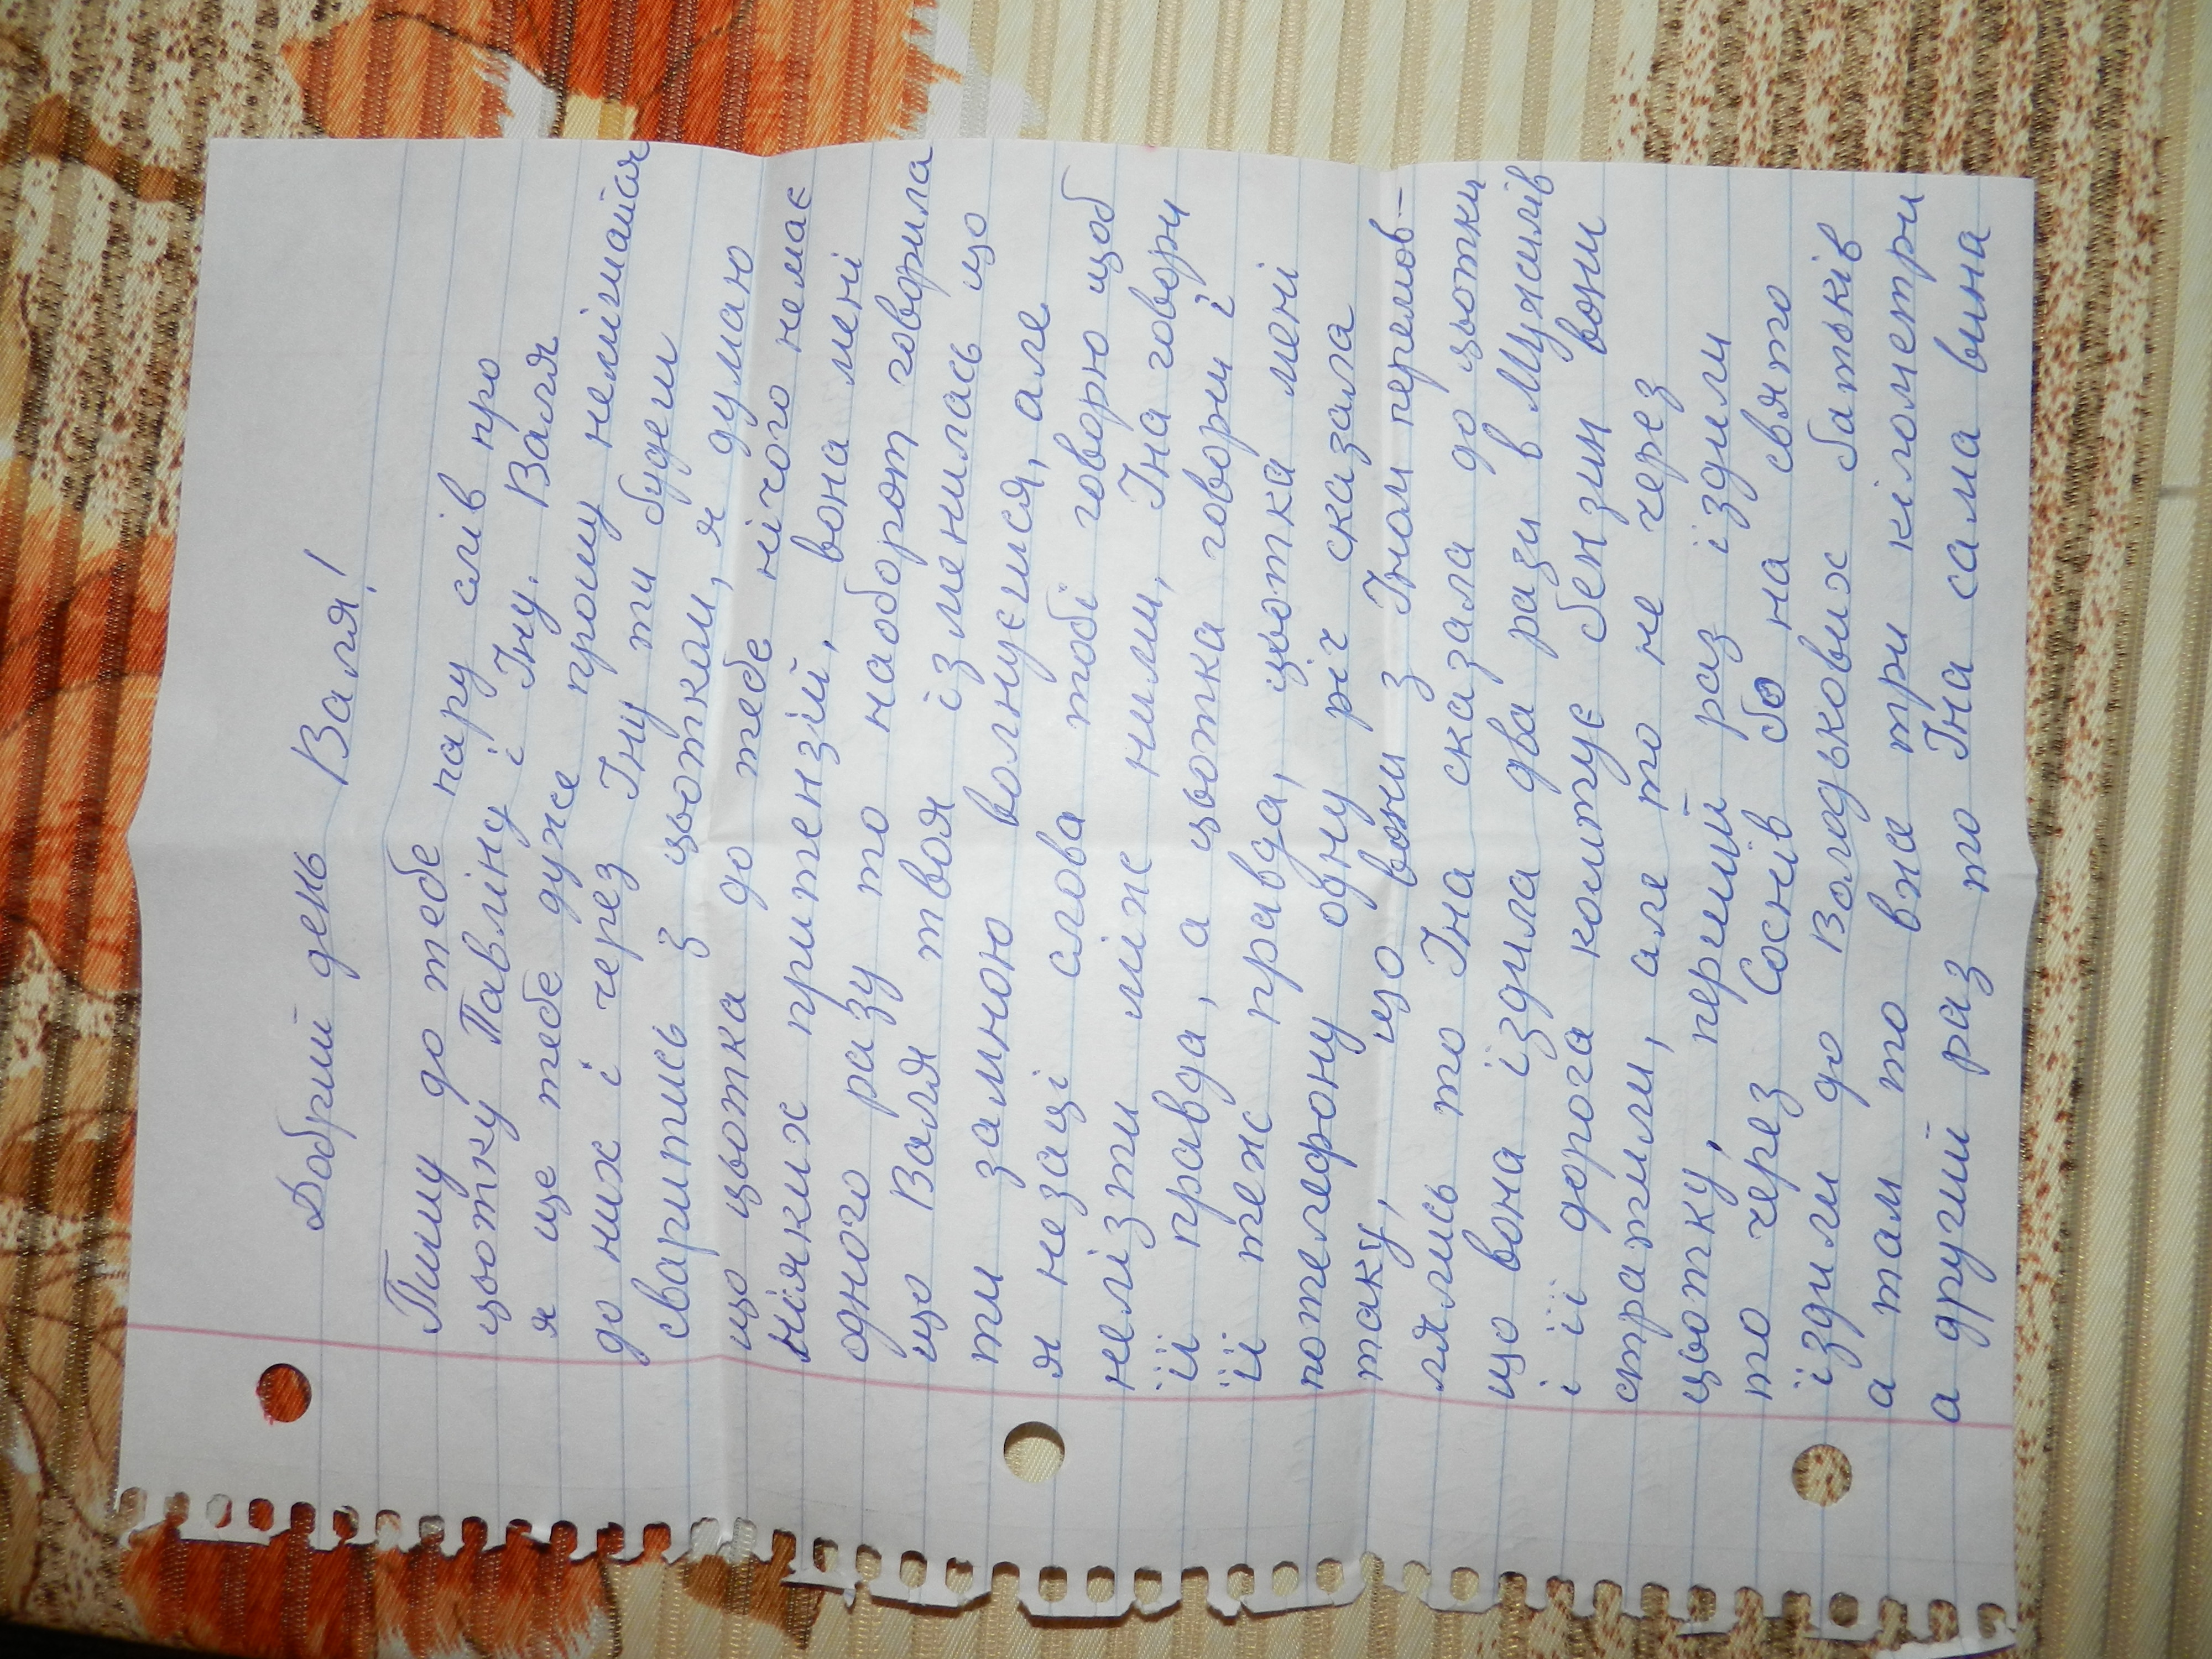 Добрий день Валя!
Пишу до тебе пару слів про
цьотку Павліну і Іну. Валя
я ще тебе дуже прошу немішайся
до них і через Іну ти будеш
сваритись з цьоткою, я думаю
що цьотка до тебе нічого немає
ніяких притензій, вона мені
одного разу то наоборот говорила
що Валя твоя ізменилась що
ти замною волнуєшся, але
я незаці слова тобі говорю щоб
нелізти між ними, Іна говори
її правда, а цьотка говори і
її теж правда, цьотка мені
потелефону одну річ сказала
таку, що вони з Іном перемов-
лялись то Іна сказала до цьотки
що вона їздила два рази в Мужилів
і її дорога коштує бензин вони
стратили, але то не через
цьотку, перший раз їздили
то через Соснів бо на свято
їздили до Володькових батьків
а там то вже три кілометри
а другий раз то Іна сама вина